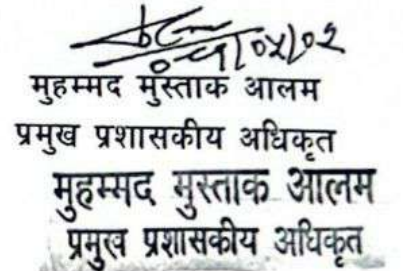 मुहम्मद मुस्ताक आलम
प्रमुख प्रशासकीय अधिकृत
मुहम्मद मुस्ताक आलम
प्रमुख प्रशासकीय अधिकृत